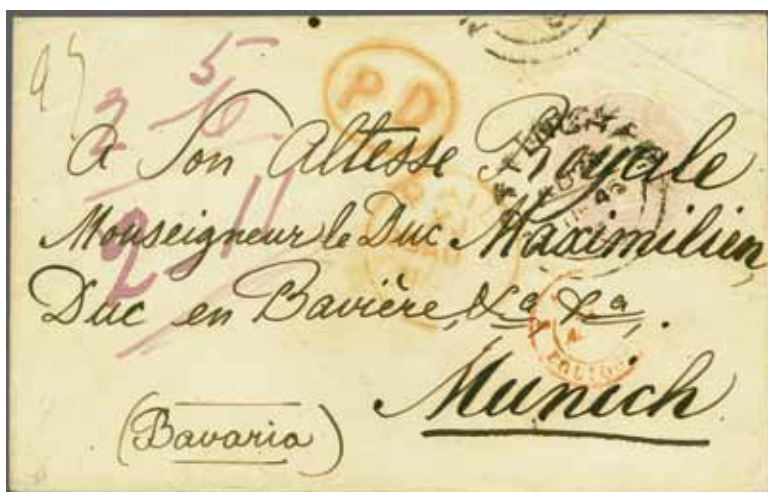 P D
A Son Altesse Royale
Monseigneur le Duc Maximilien,
Duc en Bavière, &a &a.
Munich
(Bavaria)